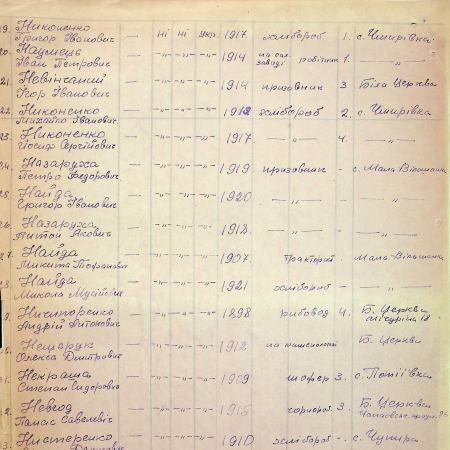 19. Никоненко — ні ні укр. 1917 хлібороб 1. с. Чмирівка
Григор Іванович
20. Наумець — -„- -„- -„- 1914 на цук. заводі робітник 1. —„—
Іван Петрович
21. Невінчаний — -„- -„- -„- 1914 призовник 3 Біла Церква
Ігор Іванович
22. Никоненко — -„- -„- -„- 1912 хлібороб 2. с. Чмирівка
Михайло Іванович.
23. Никоненко — -„- -„- -„- 1917 —„— 4. —„—
Йосиф Сергійович
24. Назаруха — -„- -„- -„- 1919 призовник - с. Мала Вільшанка
Петро Федорович
25. Найда — -„- -„- -„- 1920 —„— - —„—
Григор Іванович
26. Назаруха — -„- -„- -„- 1918 —„— - —„—
Антон Якович
27. Найда — -„- -„- -„- 1907 тракторист - Мала-Вільшанка
Микита Теофанович
28. Найда — -„- -„- -„- 1921 хлібороб - —„—
Микола Мусійович
29. Нисторенко — -„- -„- -„- 1898 рибовод 4. Б. Церква
Андрій Антонович Мічуріна 18
Нещерук — -„- -„- -„- 1912 Б. Церква
Олекса Дмитрович
31. Некраша — -„- -„- -„- 1909 шофер 3. с. Потіївка
Степан Сидорович
32. Невгод — -„- -„- -„- 1915 3. Б. Церква
Панас Савелевіч
33. Нистеренко — -„- -„- -„- 1910 хлібороб - с. Чупира